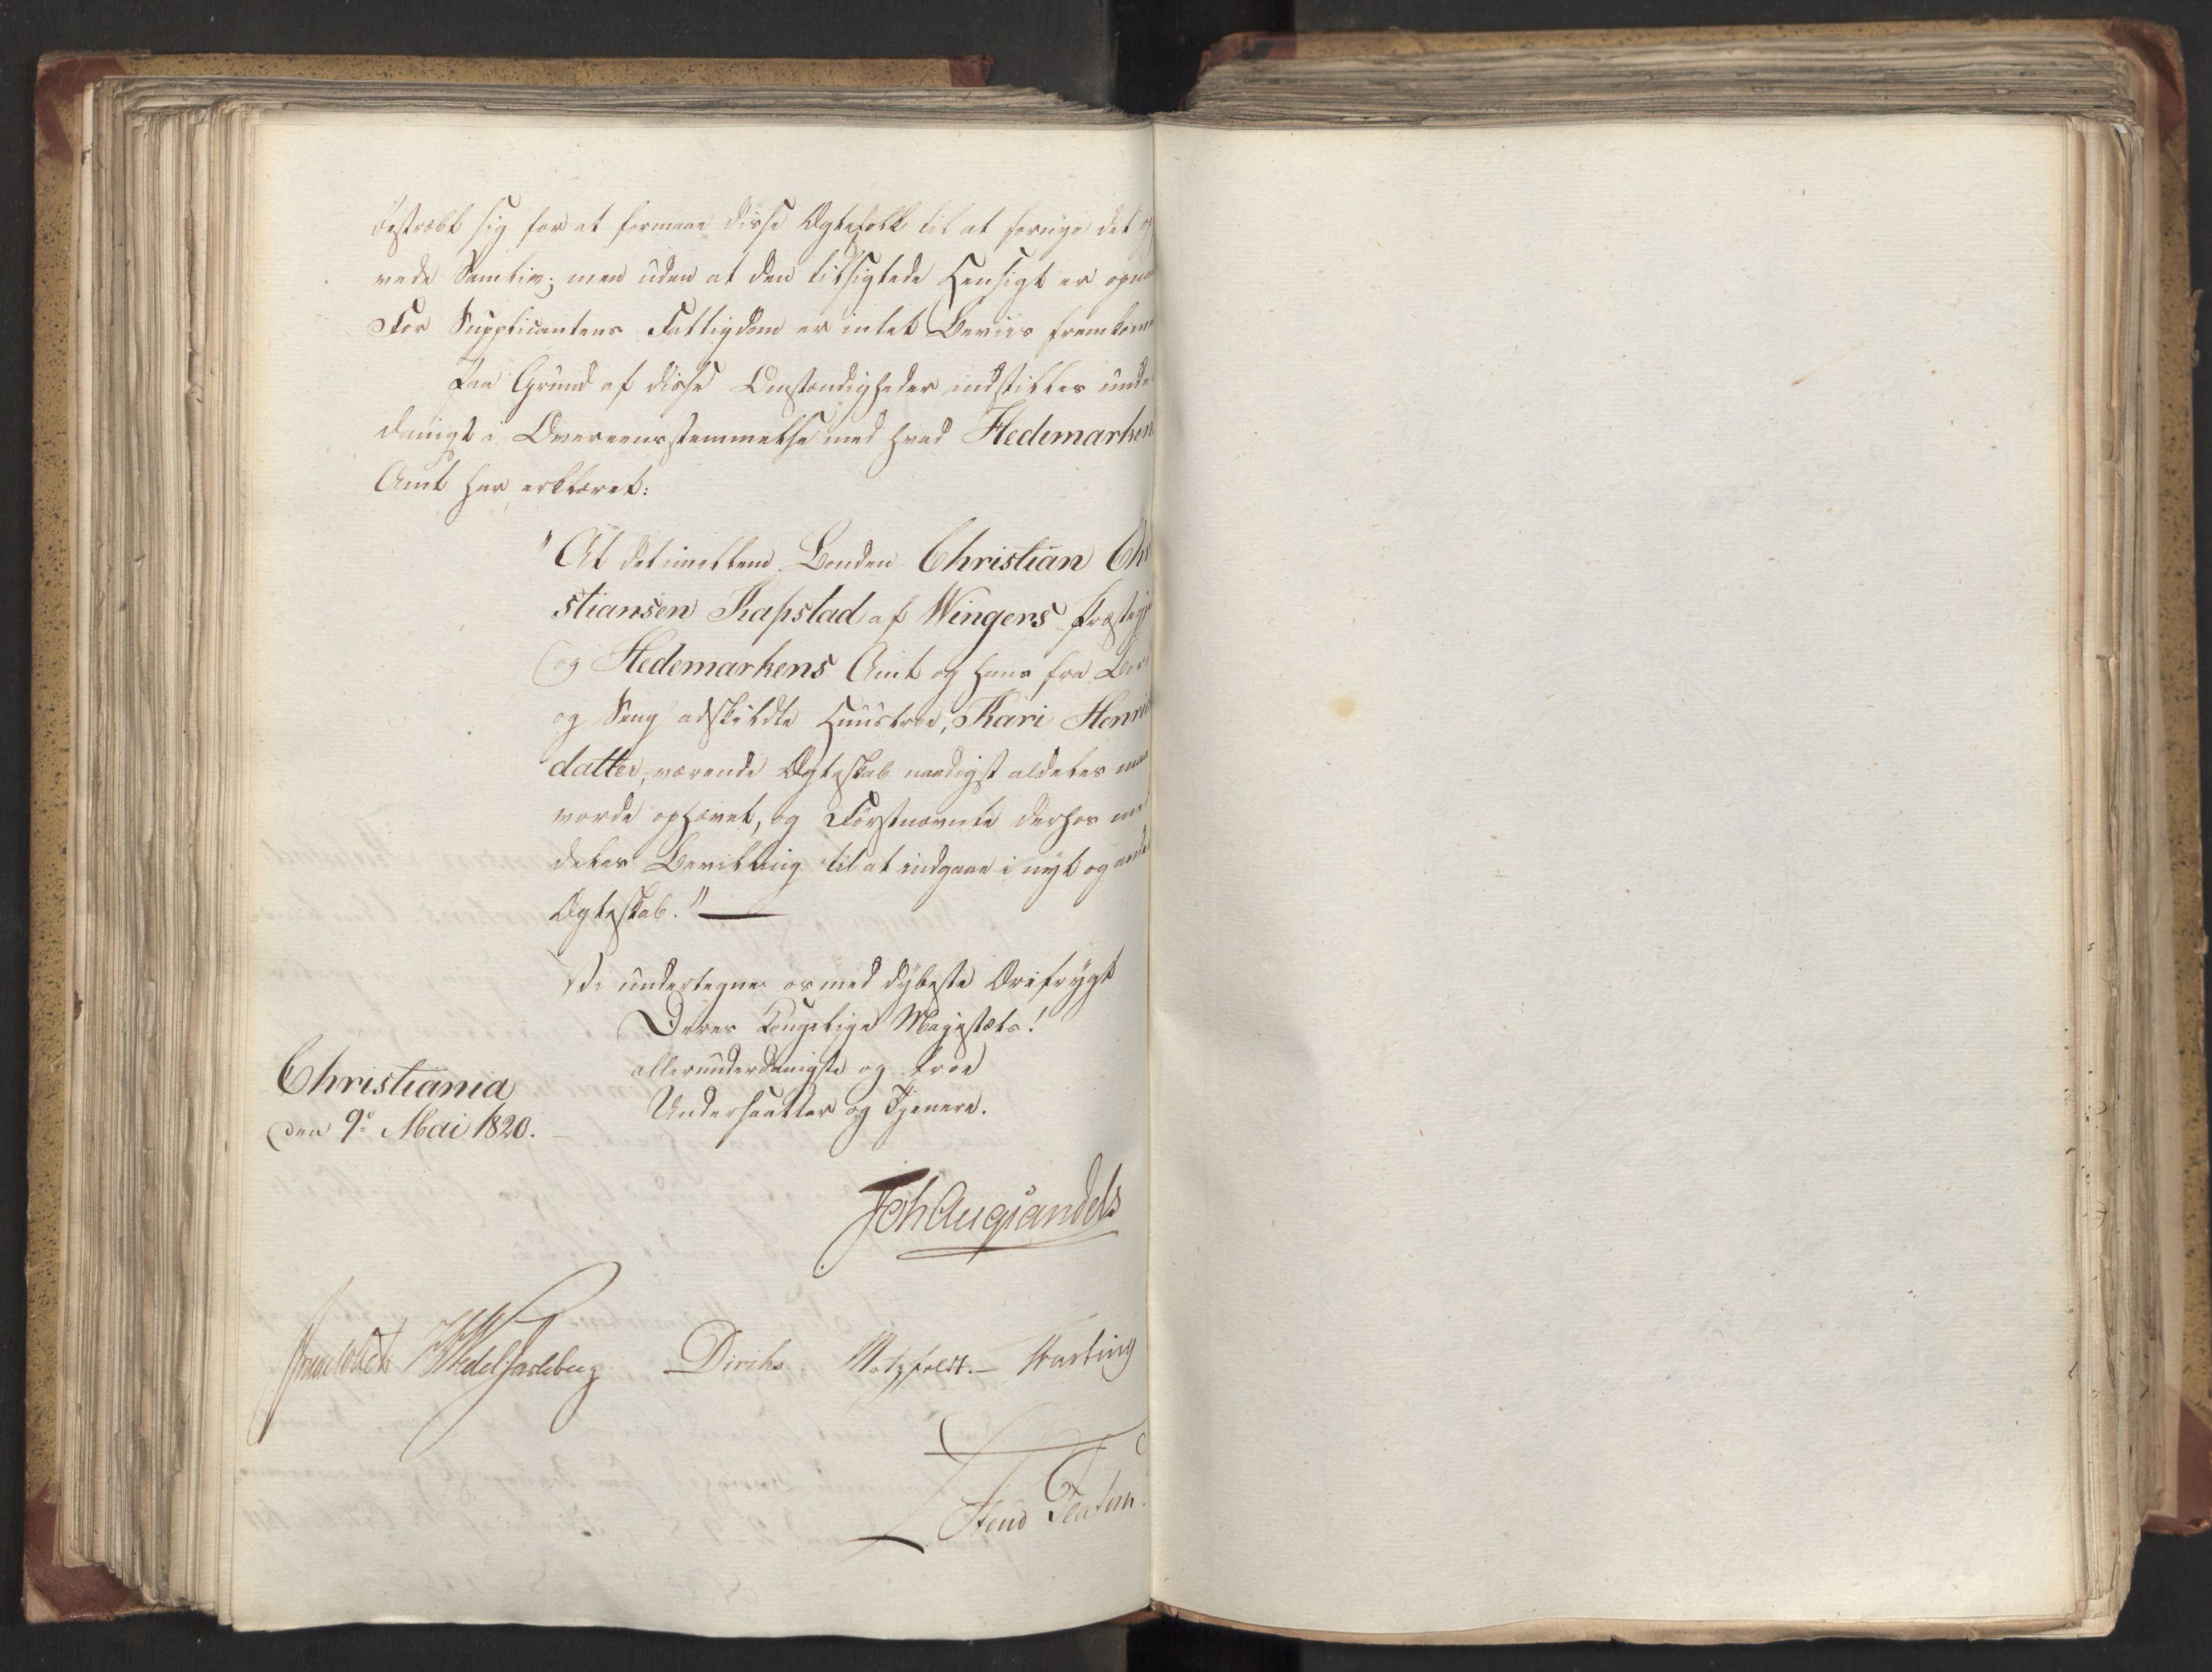 bestræbt sig for at formaae disse Ægtefolk til at fornye det
vede Samliv; men uden at den tilsigtede Hensigt er opn
For Supplicantens Fattigdom er intet Beviis fremkom
Paa Grund af disse Omstændigheder indstilles unde
danigst i Overeensstemmelse med hvad Hedemarken
Amt har erklæret:
"At det imellem Bonden Christian Chr
stiansen Kapstad af Wingers Præstegj
og Hedemarkens Amt og hans fra Bord
og Seng adskildte Huustroe, Kari Henri
datter, værende Ægteskab naadigst aldeles maa
vorde ophævet, og Førstnævnte derhos med
deles Bevilling til at indgaae i nyt og andet
Ægteskab."
Vi undertegne os med dybeste Ærefrygt
Deres Kongelige Majestæts!
allerunderdanigste og troe
Undersaatter og Tjenere.
Christiania
den 9de Mai 1820.
Joh Aug Sandels
Sommerhielm HWedel Jarlsberg Diriks Motzfeldt. Fasting